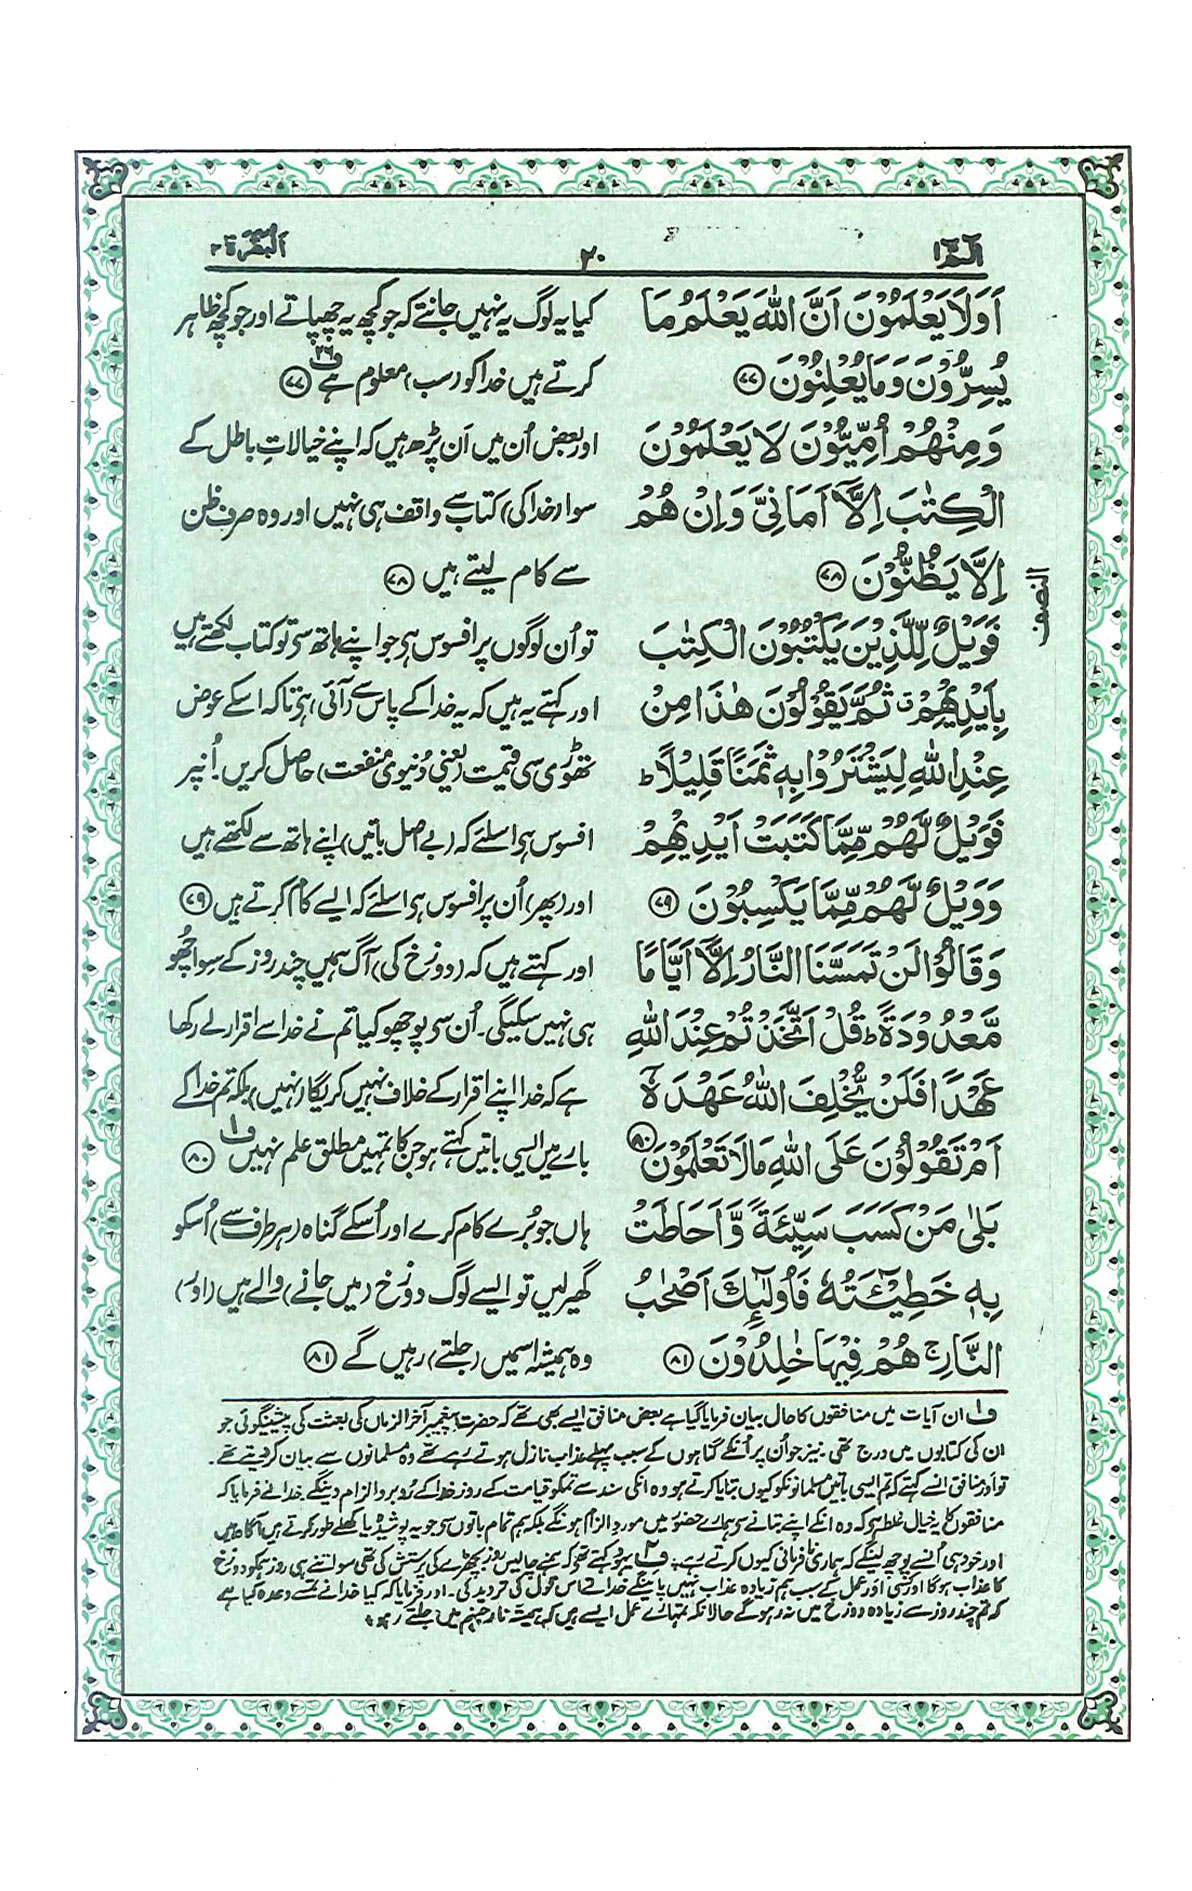 الٓمّٓ ١
٢٠
اَلْبَقَرَة ٢
اَوَلَا يَعْلَمُوْنَ اَنَّ اللّٰهَ يَعْلَمُ مَا
يُسِرُّوْنَ وَمَا يُعْلِنُوْنَ ﴿٧٧﴾
وَمِنْهُمْ اُمِّيُّوْنَ لَا يَعْلَمُوْنَ
الْكِتٰبَ اِلَّآ اَمَانِيَّ وَاِنْ هُمْ
اِلَّا يَظُنُّوْنَ ﴿٧٨﴾
فَوَيْلٌ لِّلَّذِيْنَ يَكْتُبُوْنَ الْكِتٰبَ
بِاَيْدِيْهِمْ ۤ ثُمَّ يَقُوْلُوْنَ هٰذَا مِنْ
عِنْدِ اللّٰهِ لِيَشْتَرُوْا بِهٖ ثَمَنًا قَلِيْلًا ؕ
فَوَيْلٌ لَّهُمْ مِّمَّا كَتَبَتْ اَيْدِيْهِمْ
وَوَيْلٌ لَّهُمْ مِّمَّا يَكْسِبُوْنَ ﴿٧٩﴾
وَقَالُوْا لَنْ تَمَسَّنَا النَّارُ اِلَّآ اَيَّامًا
مَّعْدُوْدَةً ؕ قُلْ اَتَّخَذْتُمْ عِنْدَ اللّٰهِ
عَهْدًا فَلَنْ يُّخْلِفَ اللّٰهُ عَهْدَهٗٓ
اَمْ تَقُوْلُوْنَ عَلَى اللّٰهِ مَا لَا تَعْلَمُوْنَ ﴿٨٠﴾
بَلٰى مَنْ كَسَبَ سَيِّئَةً وَّاَحَاطَتْ
بِهٖ خَطِيْٓئَتُهٗ فَاُولٰٓئِكَ اَصْحٰبُ
النَّارِ ۚ هُمْ فِيْهَا خٰلِدُوْنَ ﴿٨١﴾
النصف
کیا یہ لوگ یہ نہیں جانتے کہ جو کچھ یہ چھپاتے اور جو کچھ ظاہر
کرتے ہیں خدا کو (سب) معلوم ہے ﴿٧٧﴾
اور بعض اُن میں اَن پڑھ ہیں کہ اپنے خیالاتِ باطل کے
سوا (خدا کی) کتاب سے واقف ہی نہیں اور وہ صرف ظن
سے کام لیتے ہیں ﴿٧٨﴾
تو اُن لوگوں پر افسوس ہی جو اپنے ہاتھ سی تو کتاب لکھتے ہیں
اور کہتے یہ ہیں کہ یہ خدا کے پاس سے (آئی) ہی تاکہ اسکے عوض
تھوڑی سی قیمت (یعنی دُنیوی منفعت) حاصل کریں۔ اُنپر
افسوس ہی اسلئے کہ (بے اصل باتیں) اپنے ہاتھ سے لکھتے ہیں
اور (پھر) اُن پر افسوس ہی اسلئے کہ ایسے کام کرتے ہیں ﴿٧٩﴾
اور کہتے ہیں کہ (دوزخ کی) آگ ہمیں چند روز کے سوا چھو
ہی نہیں سکیگی۔ اُن سی پوچھو کیا تم نے خدا سے اقرار لے رکھا
ہے کہ خدا اپنے اقرار کے خلاف نہیں کریگا (نہیں) بلکہ تم خدا کے
بارے میں ایسی باتیں کہتے ہو جن کا تمہیں مطلق علم نہیں ف١ ﴿٨٠﴾
ہاں جو بُرے کام کرے اور اُسکے گناہ (ہر طرف سے) اُسکو
گھیر لیں تو ایسے لوگ دوزخ (میں جانے) والے ہیں (اور)
وہ ہمیشہ اسمیں (جلتے) رہیں گے ﴿٨١﴾
ف١ ان آیات میں منافقوں کا حال بیان فرمایا گیا ہے بعض منافق ایسے بھی تھے کہ حضرت پیغمبر آخر الزماں کی بعثت کی پیشینگوئی جو
ان کی کتابوں میں درج تھی۔ نیز جو اُن پر اُنکے گناہوں کے سبب پہلے عذاب نازل ہوتے رہے تھے وہ مسلمانوں سے بیان کردیتے تھے۔
تو اور منافق انسے کہتے کہ تم ایسی باتیں مسلمانونکو کیوں بتایا کرتے ہو وہ انکی سند سے تمکو قیامت کے روز خدا کے رُوبرو الزام دینگے خدا نے فرمایا کہ
منافقوں کا یہ خیال غلط ہی کہ وہ انکے اپنے بتانے سی ہمارے حضور میں موردِ الزام ہونگے بلکہ ہم تمام باتوں سی جو یہ پوشیدہ یا کھلے طور کرتے ہیں آگاہ ہیں
اور خود ہی اُنسے پوچھ لینگے کہ ہماری نافرمانی کیوں کرتے رہے ف٢ یہود کہتے تھے کہ ہمنے چالیس روز بچھڑے کی پرستش کی تھی سو اتنے ہی روز ہمکو دوزخ
کا عذاب ہوگا اور کسی اور عمل کے سبب ہم زیادہ عذاب نہیں پائینگے خدا نے اس قول کی تردید کی۔ اور فرمایا کہ کیا خدا نے تمسے وعدہ کیا ہے
کہ تم چند روز سے زیادہ دوزخ میں نہ رہو گے حالانکہ تمہارے عمل ایسے ہیں کہ ہمیشہ نار جہنم میں جلتے رہو